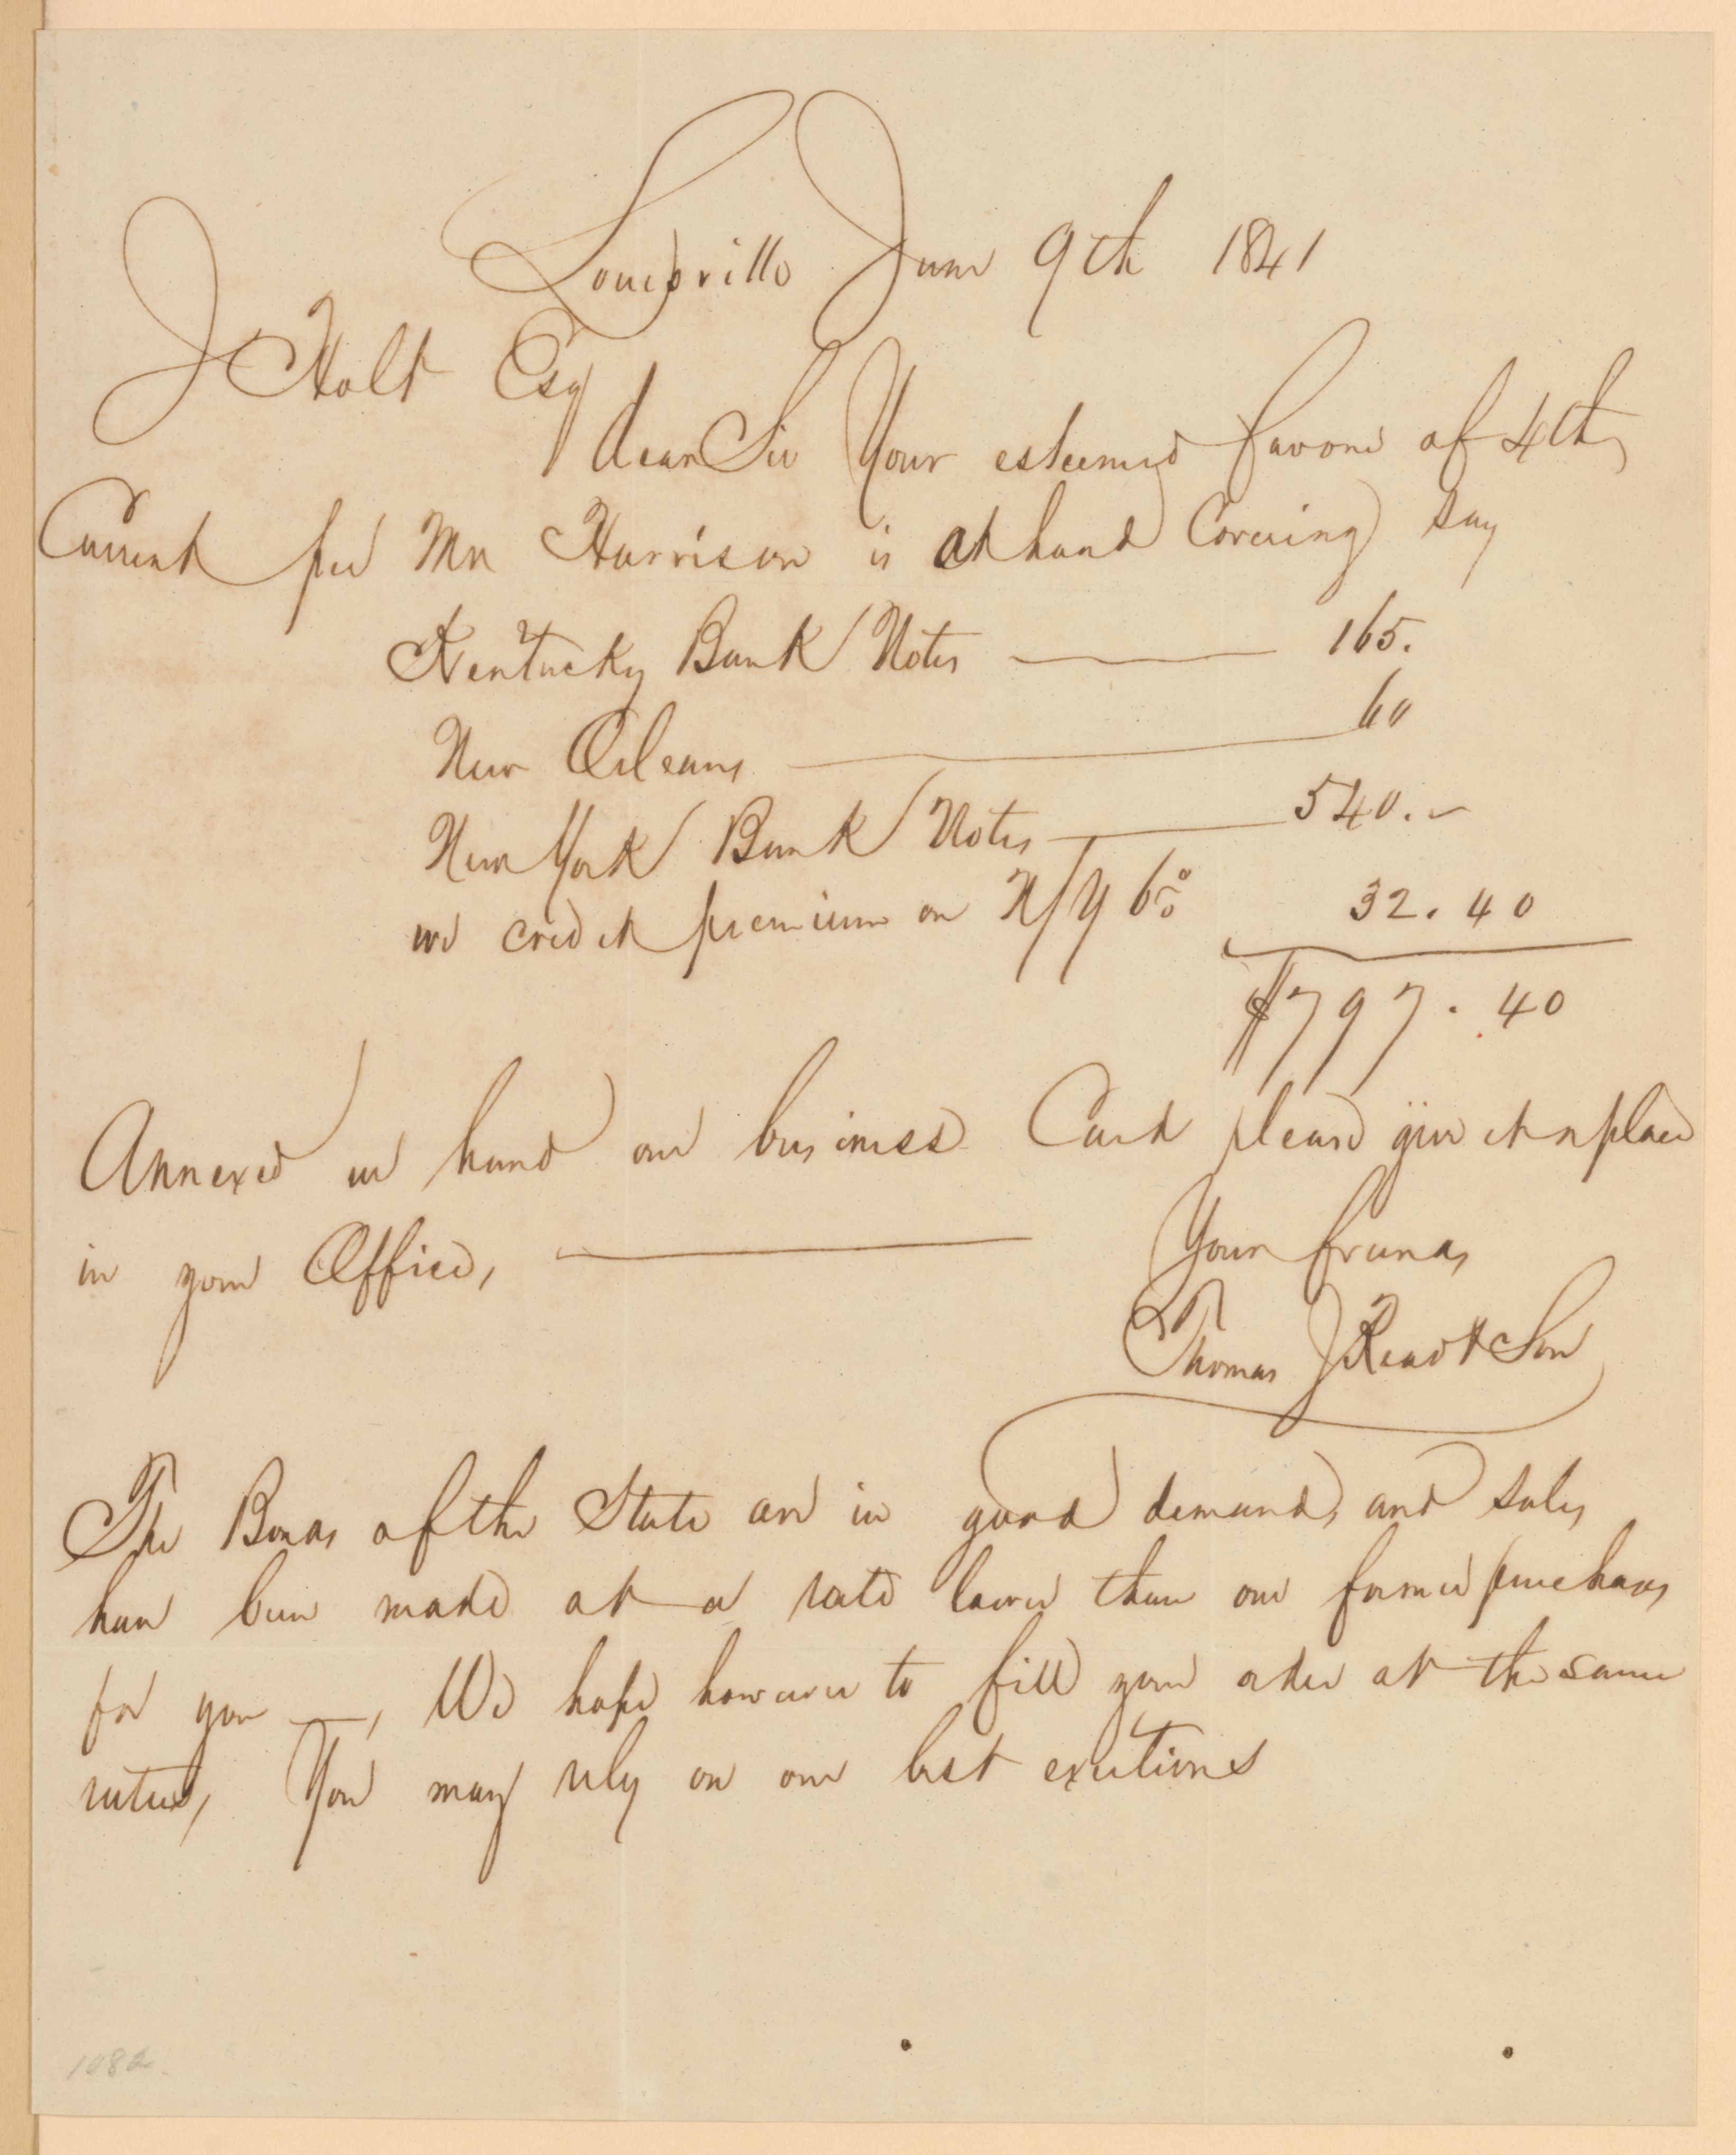 Louisville June 9th 1841
J Holt Esq
Dear Sir Your esteemed favour of 4th
Current per Mr Harrison is at hand Covering say
Kentucky Bank Notes — 165.
New Orleans — 60
New York Bank Notes — 540.-
we credit premium on N/Y 6% 32.40
$797.40
Annexed we hand our business Card please give it a place
in your Office, —
Your friends
Thomas J Read & Son
The Bonds of the State are in good demand, and sales
have been made at a rate lower than our former purchases
for you —, We hope however to fill your order at the same
rates, You may rely on our best exertions
1082